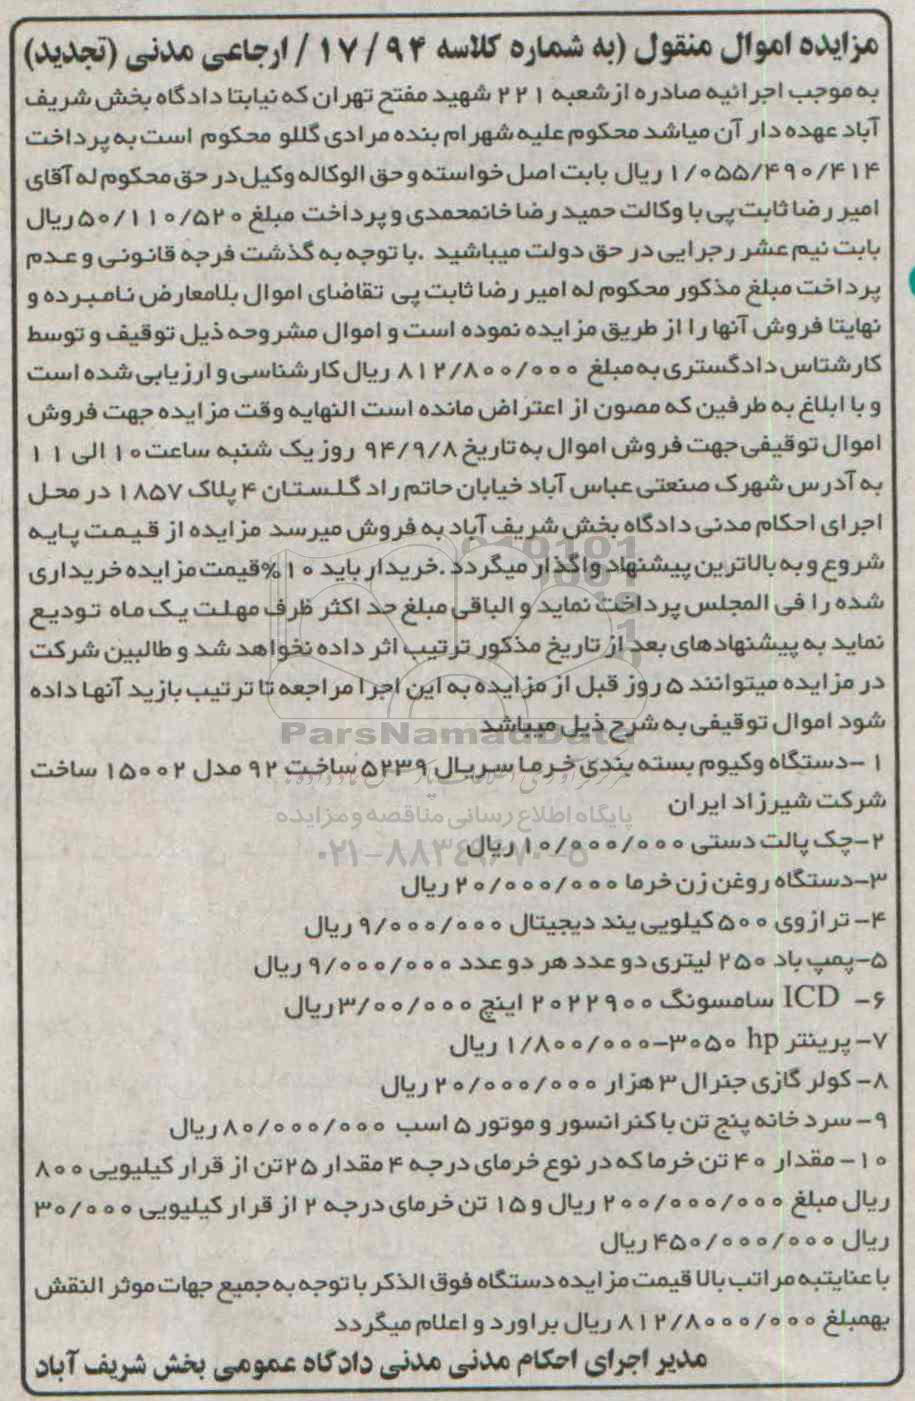 مزایده اموال منقول (به شماره کلاسه ۹۴ / ۱۷ / ارجاعی مدنی (تجدید)
به موجب اجرائیه صادره از شعبه ۲۲۱ شهید مفتح تهران که نیابتا دادگاه بخش شریف
آباد عهده دار آن میباشد محکوم علیه شهرام بنده مرادی گللو محکوم است به پرداخت
۱/۰۵۵/۴۹۰/۴۱۴ ریال بابت اصل خواسته و حق الوکاله وکیل در حق محکوم له آقای
امیر رضا ثابت پی با وکالت حمید رضا خانمحمدی و پرداخت مبلغ ۵۰/۱۱۰/۵۲۰ ریال
بابت نیم عشر رجرایی در حق دولت میباشید .با توجه به گذشت فرجه قانونی و عدم
پرداخت مبلغ مذکور محکوم له امیر رضا ثابت پی تقاضای اموال بلامعارض نامبرده و
نهایتا فروش آنها را از طریق مزایده نموده است و اموال مشروحه ذیل توقیف و توسط
کارشناس دادگستری به مبلغ ۸۱۲/۸۰۰/۰۰۰ ریال کارشناسی و ارزیابی شده است
و با ابلاغ به طرفین که مصون از اعتراض مانده است النهایه وقت مزایده جهت فروش
اموال توقیفی جهت فروش اموال به تاریخ ۹۴/۹/۸ روز یک شنبه ساعت ۱۰ الی ۱۱
به آدرس شهرک صنعتی عباس آباد خیابان حاتم راد گلستان ۴ پلاک ۱۸۵۷ در محل
اجرای احکام مدنی دادگاه بخش شریف آباد به فروش میرسد مزایده از قیمت پایه
شروع و به بالاترین پیشنهاد واگذار میگردد .خریدار باید ۱۰%قیمت مزایده خریداری
شده را فی المجلس پرداخت نماید و الباقی مبلغ حد اکثر ظرف مهلت یک ماه تودیع
نماید به پیشنهادهای بعد از تاریخ مذکور ترتیب اثر داده نخواهد شد و طالبین شرکت
در مزایده میتوانند ۵ روز قبل از مزایده به این اجرا مراجعه تا ترتیب بازید آنها داده
شود اموال توقیفی به شرح ذیل میباشد
ParsNamadData
۱ -دستگاه وکیوم بسته بندی خرما سریال ۵۲۳۹ ساخت ۹۲ مدل ۱۵۰۰۲ ساخت
شرکت شیرزاد ایران
پایگاه اطلاع رسانی مناقصه و مزایده
۲-چک پالت دستی ۱۰/۰۰۰/۰۰۰ ریال
۰۲۱-۸۸۳۴۹۶۷۰-۵
۳-دستگاه روغن زن خرما ۲۰/۰۰۰/۰۰۰ ریال
۴- ترازوی ۵۰۰ کیلویی پند دیجیتال ۹/۰۰۰/۰۰۰ ریال
۵-پمپ باد ۲۵۰ لیتری دو عدد هر دو عدد ۹/۰۰۰/۰۰۰ ریال
۶- ICD سامسونگ ۲۰۲۲۹۰۰ اینچ ۳/۰۰/۰۰۰ ریال
۷- پرینتر hp ۳۰۵۰-۱/۸۰۰/۰۰۰ ریال
۸- کولر گازی جنرال ۳ هزار ۲۰/۰۰۰/۰۰۰ ریال
۹- سرد خانه پنج تن با کنرانسور و موتور ۵ اسب ۸۰/۰۰۰/۰۰۰ ریال
۱۰- مقدار ۴۰ تن خرما که در نوع خرمای درجه ۴ مقدار ۲۵ تن از قرار کیلیویی ۸۰۰
ریال مبلغ ۲۰۰/۰۰۰/۰۰۰ ریال و ۱۵ تن خرمای درجه ۲ از قرار کیلیویی ۳۰/۰۰۰
ریال ۴۵۰/۰۰۰/۰۰۰ ریال
با عنایتبه مراتب بالا قیمت مزایده دستگاه فوق الذکر با توجه به جمیع جهات موثر النقش
بهمبلغ ۸۱۲/۸۰۰۰/۰۰۰ ریال براورد و اعلام میگردد
مدیر اجرای احکام مدنی مدنی دادگاه عمومی بخش شریف آباد